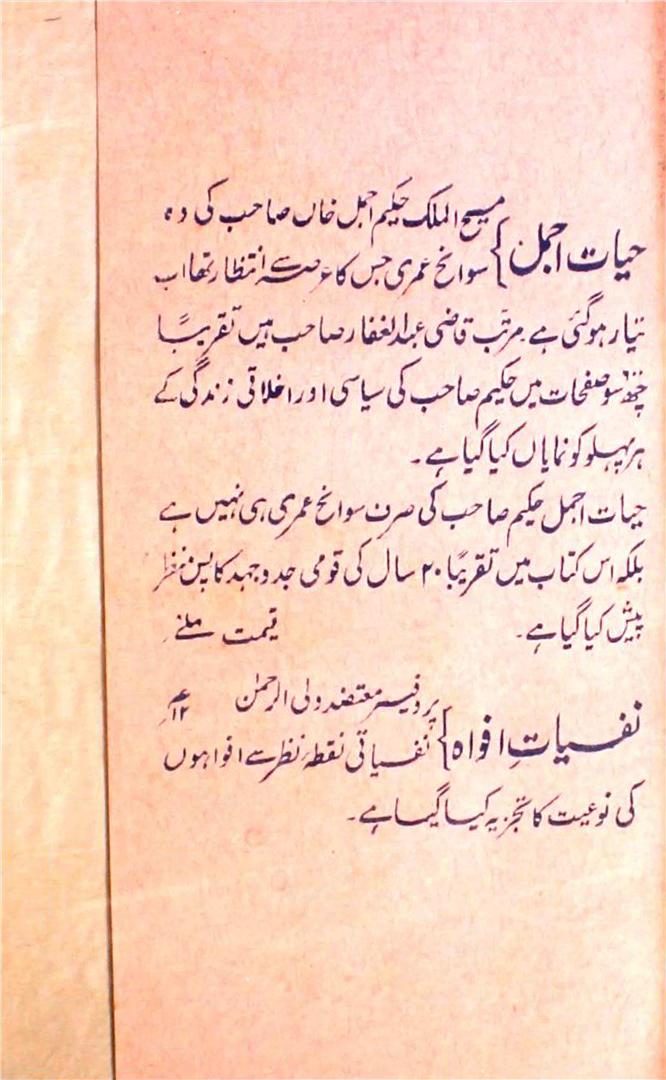 حیات اجمل} مسیح الملک حکیم اجمل خاں صاحب کی وہ
سوانح عمری جس کا عرصہ سے انتظار تھا اب
تیار ہوگئی ہے مرتب قاضی عبدالغفار صاحب ہیں تقریباً
چھ سو صفحات میں حکیم صاحب کی سیاسی اور اخلاقی زندگی کے
ہر پہلو کو نمایاں کیا گیا ہے۔
حیات اجمل حکیم صاحب کی صرف سوانح عمری ہی نہیں ہے
بلکہ اس کتاب میں تقریباً ۲۰ سال کی قومی جدوجہد کا پس منظر
پیش کیا گیا ہے۔ قیمت
نفسیاتِ افواہ} پروفیسر معتضد ولی الرحمٰن ۱۲
نفسیاتی نقطۂ نظر سے افواہوں
کی نوعیت کا تجزیہ کیا گیا ہے۔